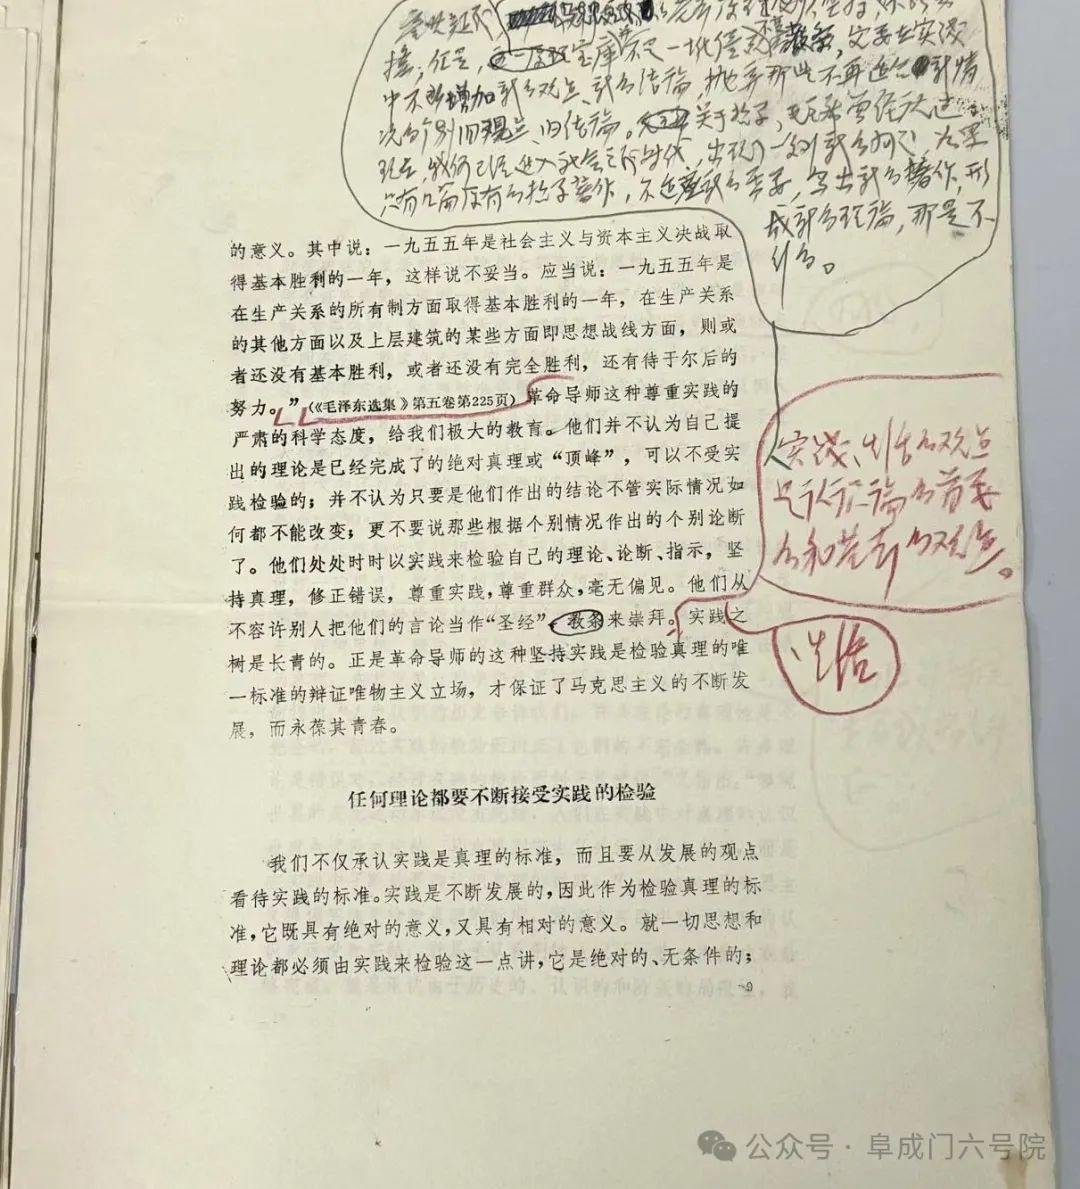 中不断增加新的观点、新的结论，抛弃那些不再适合新情
况的个别旧观点、旧结论。关于哲学，毛主席曾经说过：
现在，我们已经进入社会主义时代，出现了一系列新的问题，如果
只有几篇原有的哲学著作，不适应新的需要，写出新的著作，形
成新的理论，那是不
行的。
的意义。其中说：一九五五年是社会主义与资本主义决战取
得基本胜利的一年，这样说不妥当。应当说：一九五五年是
在生产关系的所有制方面取得基本胜利的一年，在生产关系
的其他方面以及上层建筑的某些方面即思想战线方面，则或
者还没有基本胜利，或者还没有完全胜利，还有待于尔后的
努力。”（《毛泽东选集》第五卷第225页）革命导师这种尊重实践的
严肃的科学态度，给我们极大的教育。他们并不认为自己提
出的理论是已经完成了的绝对真理或“顶峰”，可以不受实
践检验的；并不认为只要是他们作出的结论不管实际情况如
何都不能改变；更不要说那些根据个别情况作出的个别论断
了。他们处处时时以实践来检验自己的理论、论断、指示，坚
持真理，修正错误，尊重实践，尊重群众，毫无偏见。他们从
不容许别人把他们的言论当作“圣经”教条来崇拜。实践之
树是长青的。正是革命导师的这种坚持实践是检验真理的唯
一标准的辩证唯物主义立场，才保证了马克思主义的不断发
展，而永葆其青春。
实践、生活的观点
是认识论的首要
的和基本的观点。
生活
任何理论都要不断接受实践的检验
我们不仅承认实践是真理的标准，而且要从发展的观点
看待实践的标准。实践是不断发展的，因此作为检验真理的标
准，它既具有绝对的意义，又具有相对的意义。就一切思想和
理论都必须由实践来检验这一点讲，它是绝对的、无条件的；
9
公众号·阜成门六号院